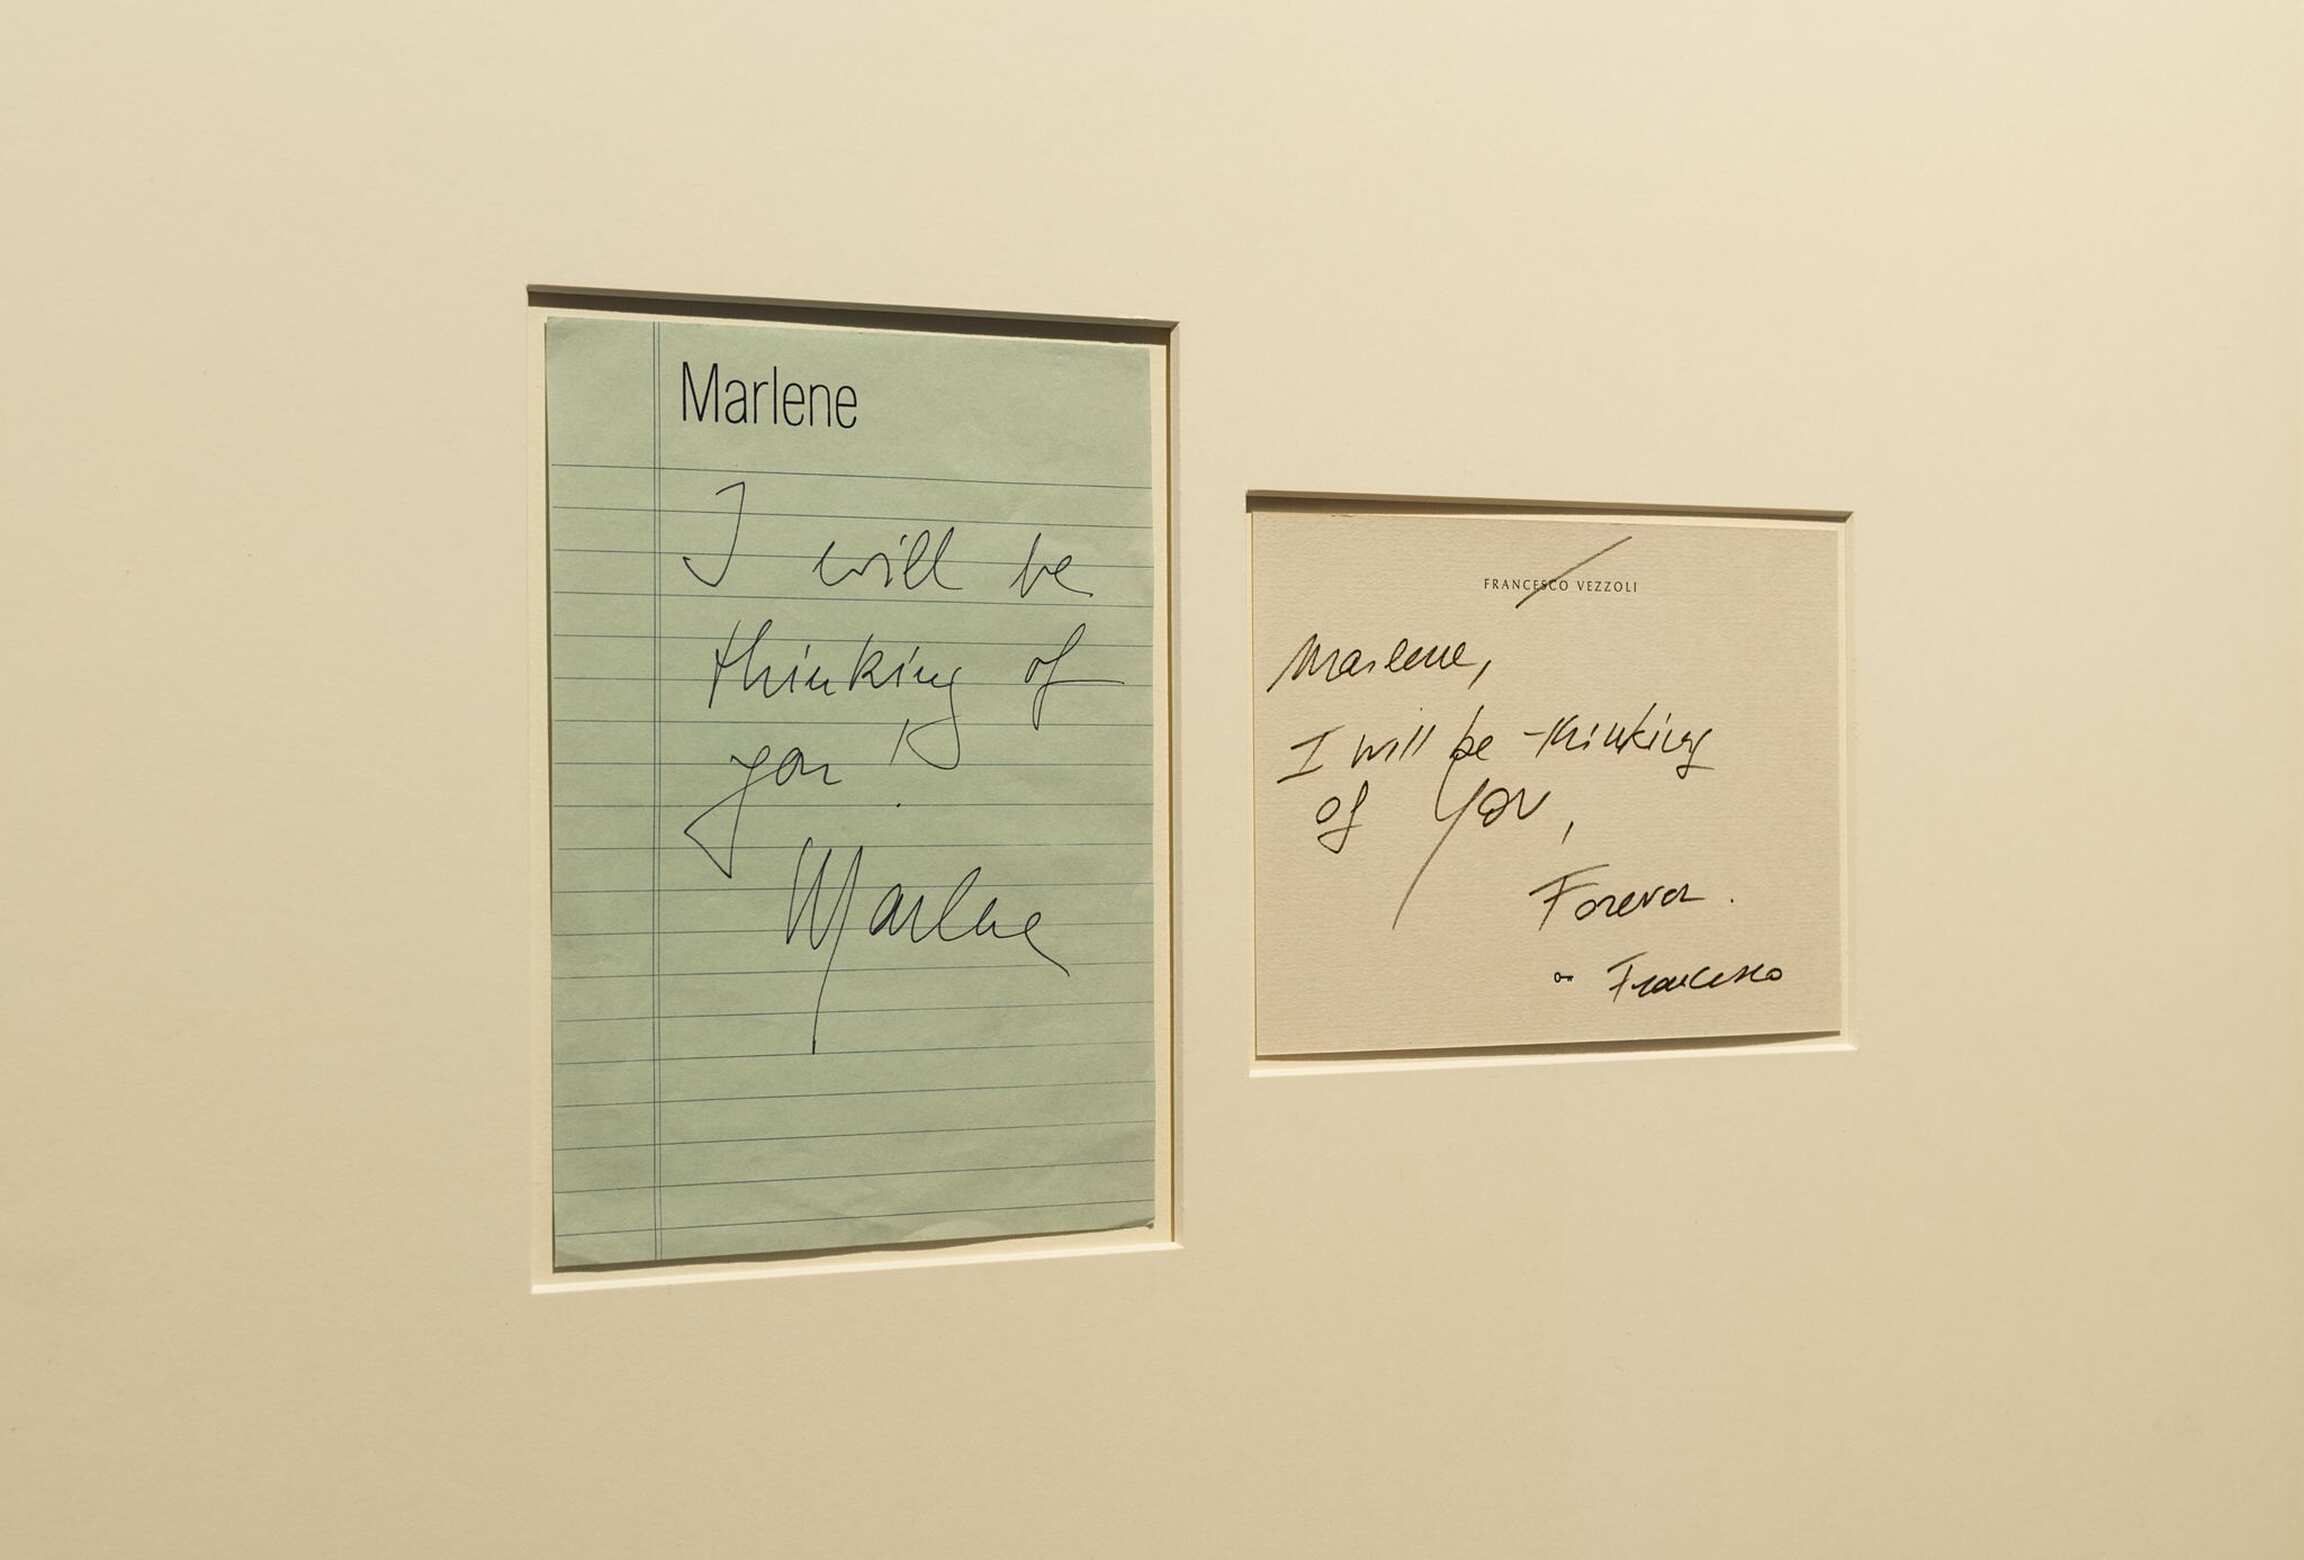 Marlene
I will be
thinking of
you!
Marlene
FRANCESCO VEZZOLI
Marlene,
I will be thinking
of you,
Forever.
Francesco